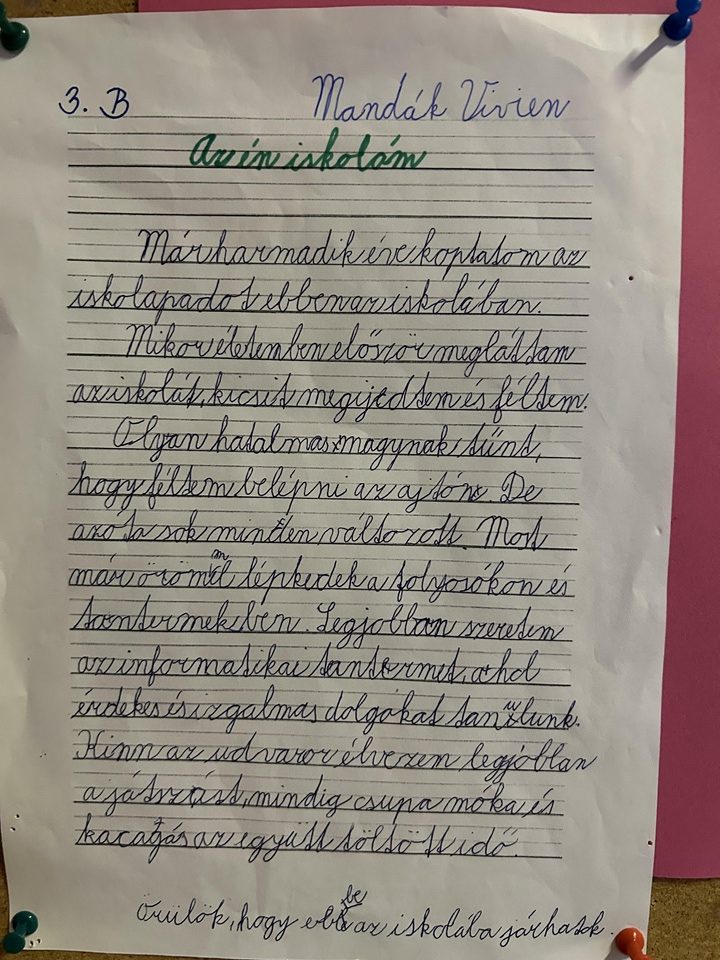 3. B Mandák Vivien
Az én iskolám
Már harmadik éve koptatom az
iskolapadot ebben az iskolában.
Mikor életemben először megláttam
az iskolát, kicsit megijedtem és féltem.
Olyan hatalmas nagynak tűnt,
hogy féltem belépni az ajtón. De
azóta sok minden változott. Most
már örömmel lépkedek a folyosókon és
tantermekben. Legjobban szeretem
az informatikai tantermet, ahol
érdekes és izgalmas dolgokat tanulunk.
Kinn az udvaron élvezem legjobban
a játszást, mindig csupa móka és
kacagás az együtt töltött idő.
Örülök, hogy ebbe az iskolába járhatok.